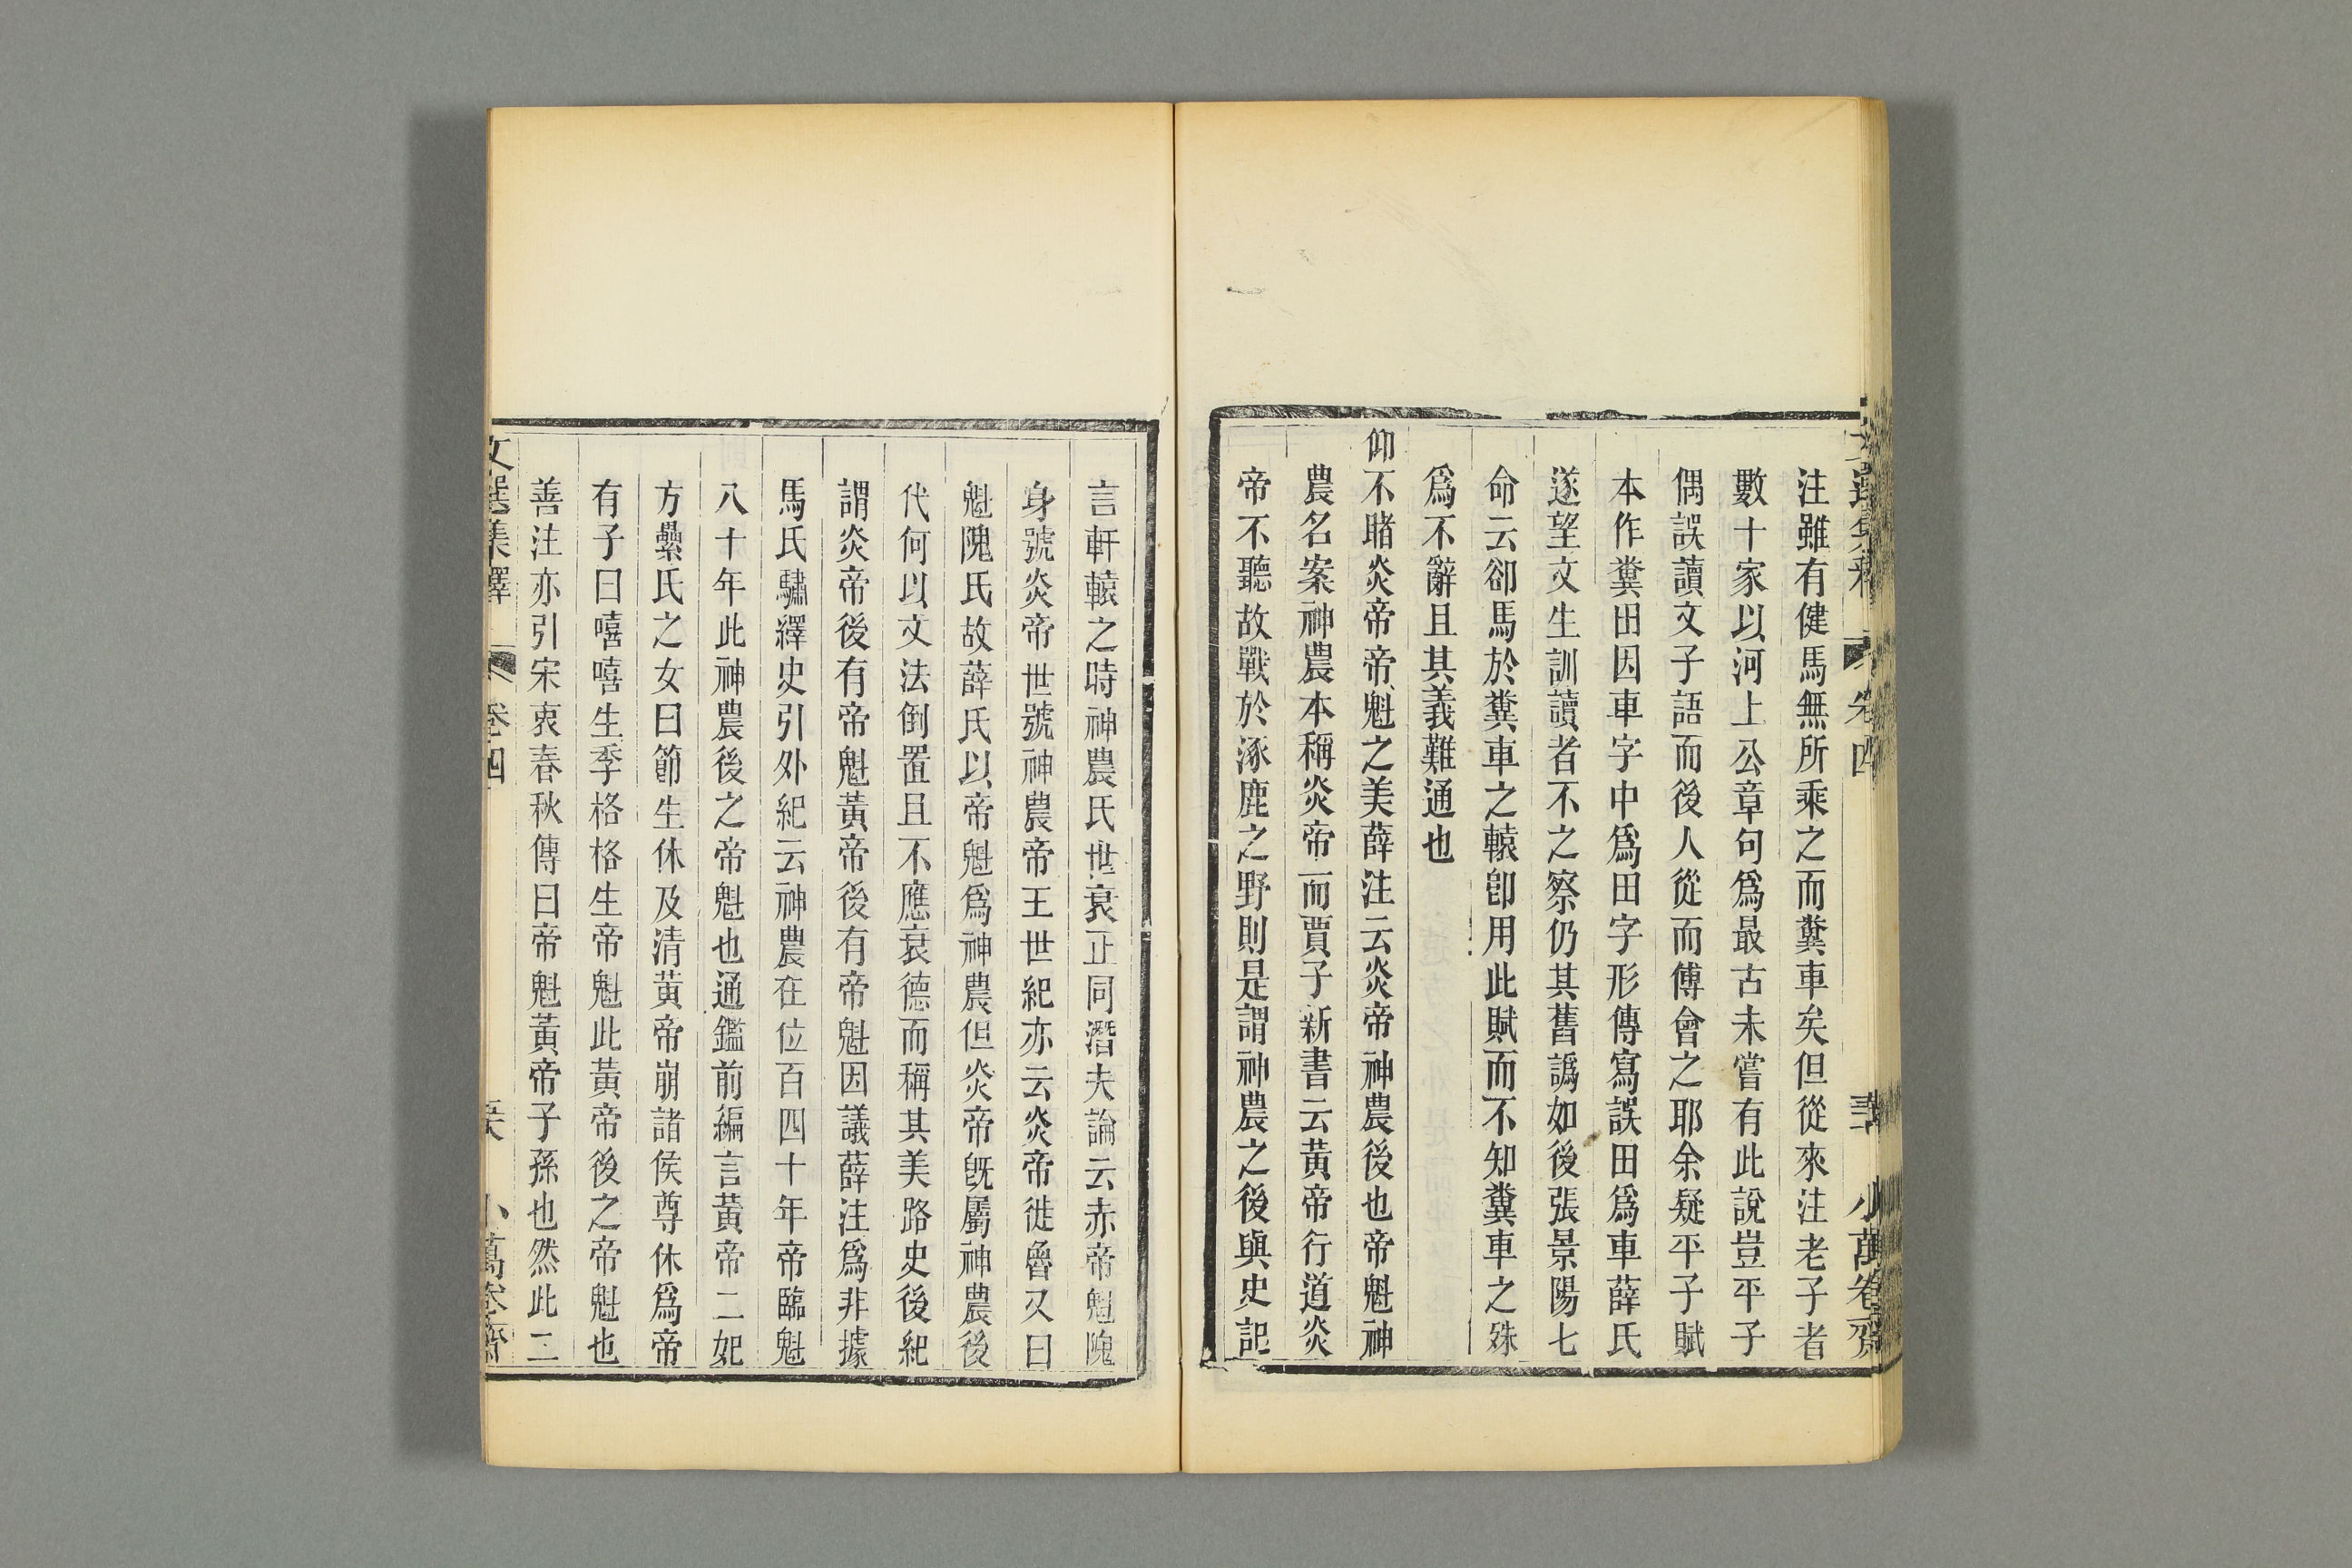 注雖有健馬無所乘之而糞車矣但從來注老子者
數十家以河上公章句爲最古未嘗有此說豈平子
偶誤讀文子語而後人從而傅會之耶余疑平子賦
本作糞田因車字中爲田字形傳寫誤田爲車薛氏
遂望文生訓讀者不之察仍其舊譌如後張景陽七
命云卻馬於糞車之轅卽用此賦而不知糞車之殊
爲不辭且其義難通也
仰不睹炎帝帝魁之美薛注云炎帝神農後也帝魁神
農名案神農本稱炎帝而賈子新書云黃帝行道炎
帝不聽故戰於涿鹿之野則是謂神農之後與史記
言軒轅之時神農氏世衰正同潛夫論云赤帝魁隗
身號炎帝世號神農帝王世紀亦云炎帝徙魯又曰
魁隗氏故薛氏以帝魁爲神農但炎帝旣屬神農後
代何以文法倒置且不應衰德而稱其美路史後紀
謂炎帝後有帝魁黃帝後有帝魁因議薛注爲非據
馬氏驌繹史引外紀云神農在位百四十年帝臨魁
八十年此神農後之帝魁也通鑑前編言黃帝二妃
方纍氏之女曰節生休及清黃帝崩諸侯尊休爲帝
有子曰嘻嘻生季格格生帝魁此黃帝後之帝魁也
善注亦引宋衷春秋傳曰帝魁黃帝子孫也然此二
文選集釋 卷四 小萬卷齋